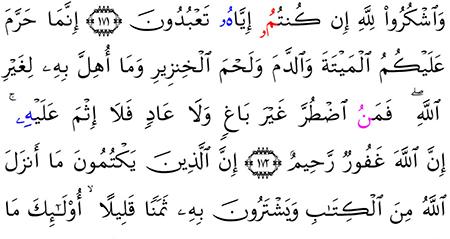 وَٱشْكُرُوا۟ لِلَّهِ إِن كُنتُمُۥ إِيَّاهُۥ تَعْبُدُونَ ﴿١٧١﴾ إِنَّمَا حَرَّمَ
عَلَيْكُمُ ٱلْمَيْتَةَ وَٱلدَّمَ وَلَحْمَ ٱلْخِنزِيرِ وَمَا أُهِلَّ بِهِۦ لِغَيْرِ
ٱللَّهِ ۖ فَمَنُ ٱضْطُرَّ غَيْرَ بَاغٍ وَلَا عَادٍ فَلَا إِثْمَ عَلَيْهِۦ ۚ
إِنَّ ٱللَّهَ غَفُورٌ رَّحِيمٌ ﴿١٧٢﴾ إِنَّ ٱلَّذِينَ يَكْتُمُونَ مَا أَنزَلَ
ٱللَّهُ مِنَ ٱلْكِتَٰبِ وَيَشْتَرُونَ بِهِۦ ثَمَنًا قَلِيلًا ۙ أُو۟لَٰٓئِكَ مَا